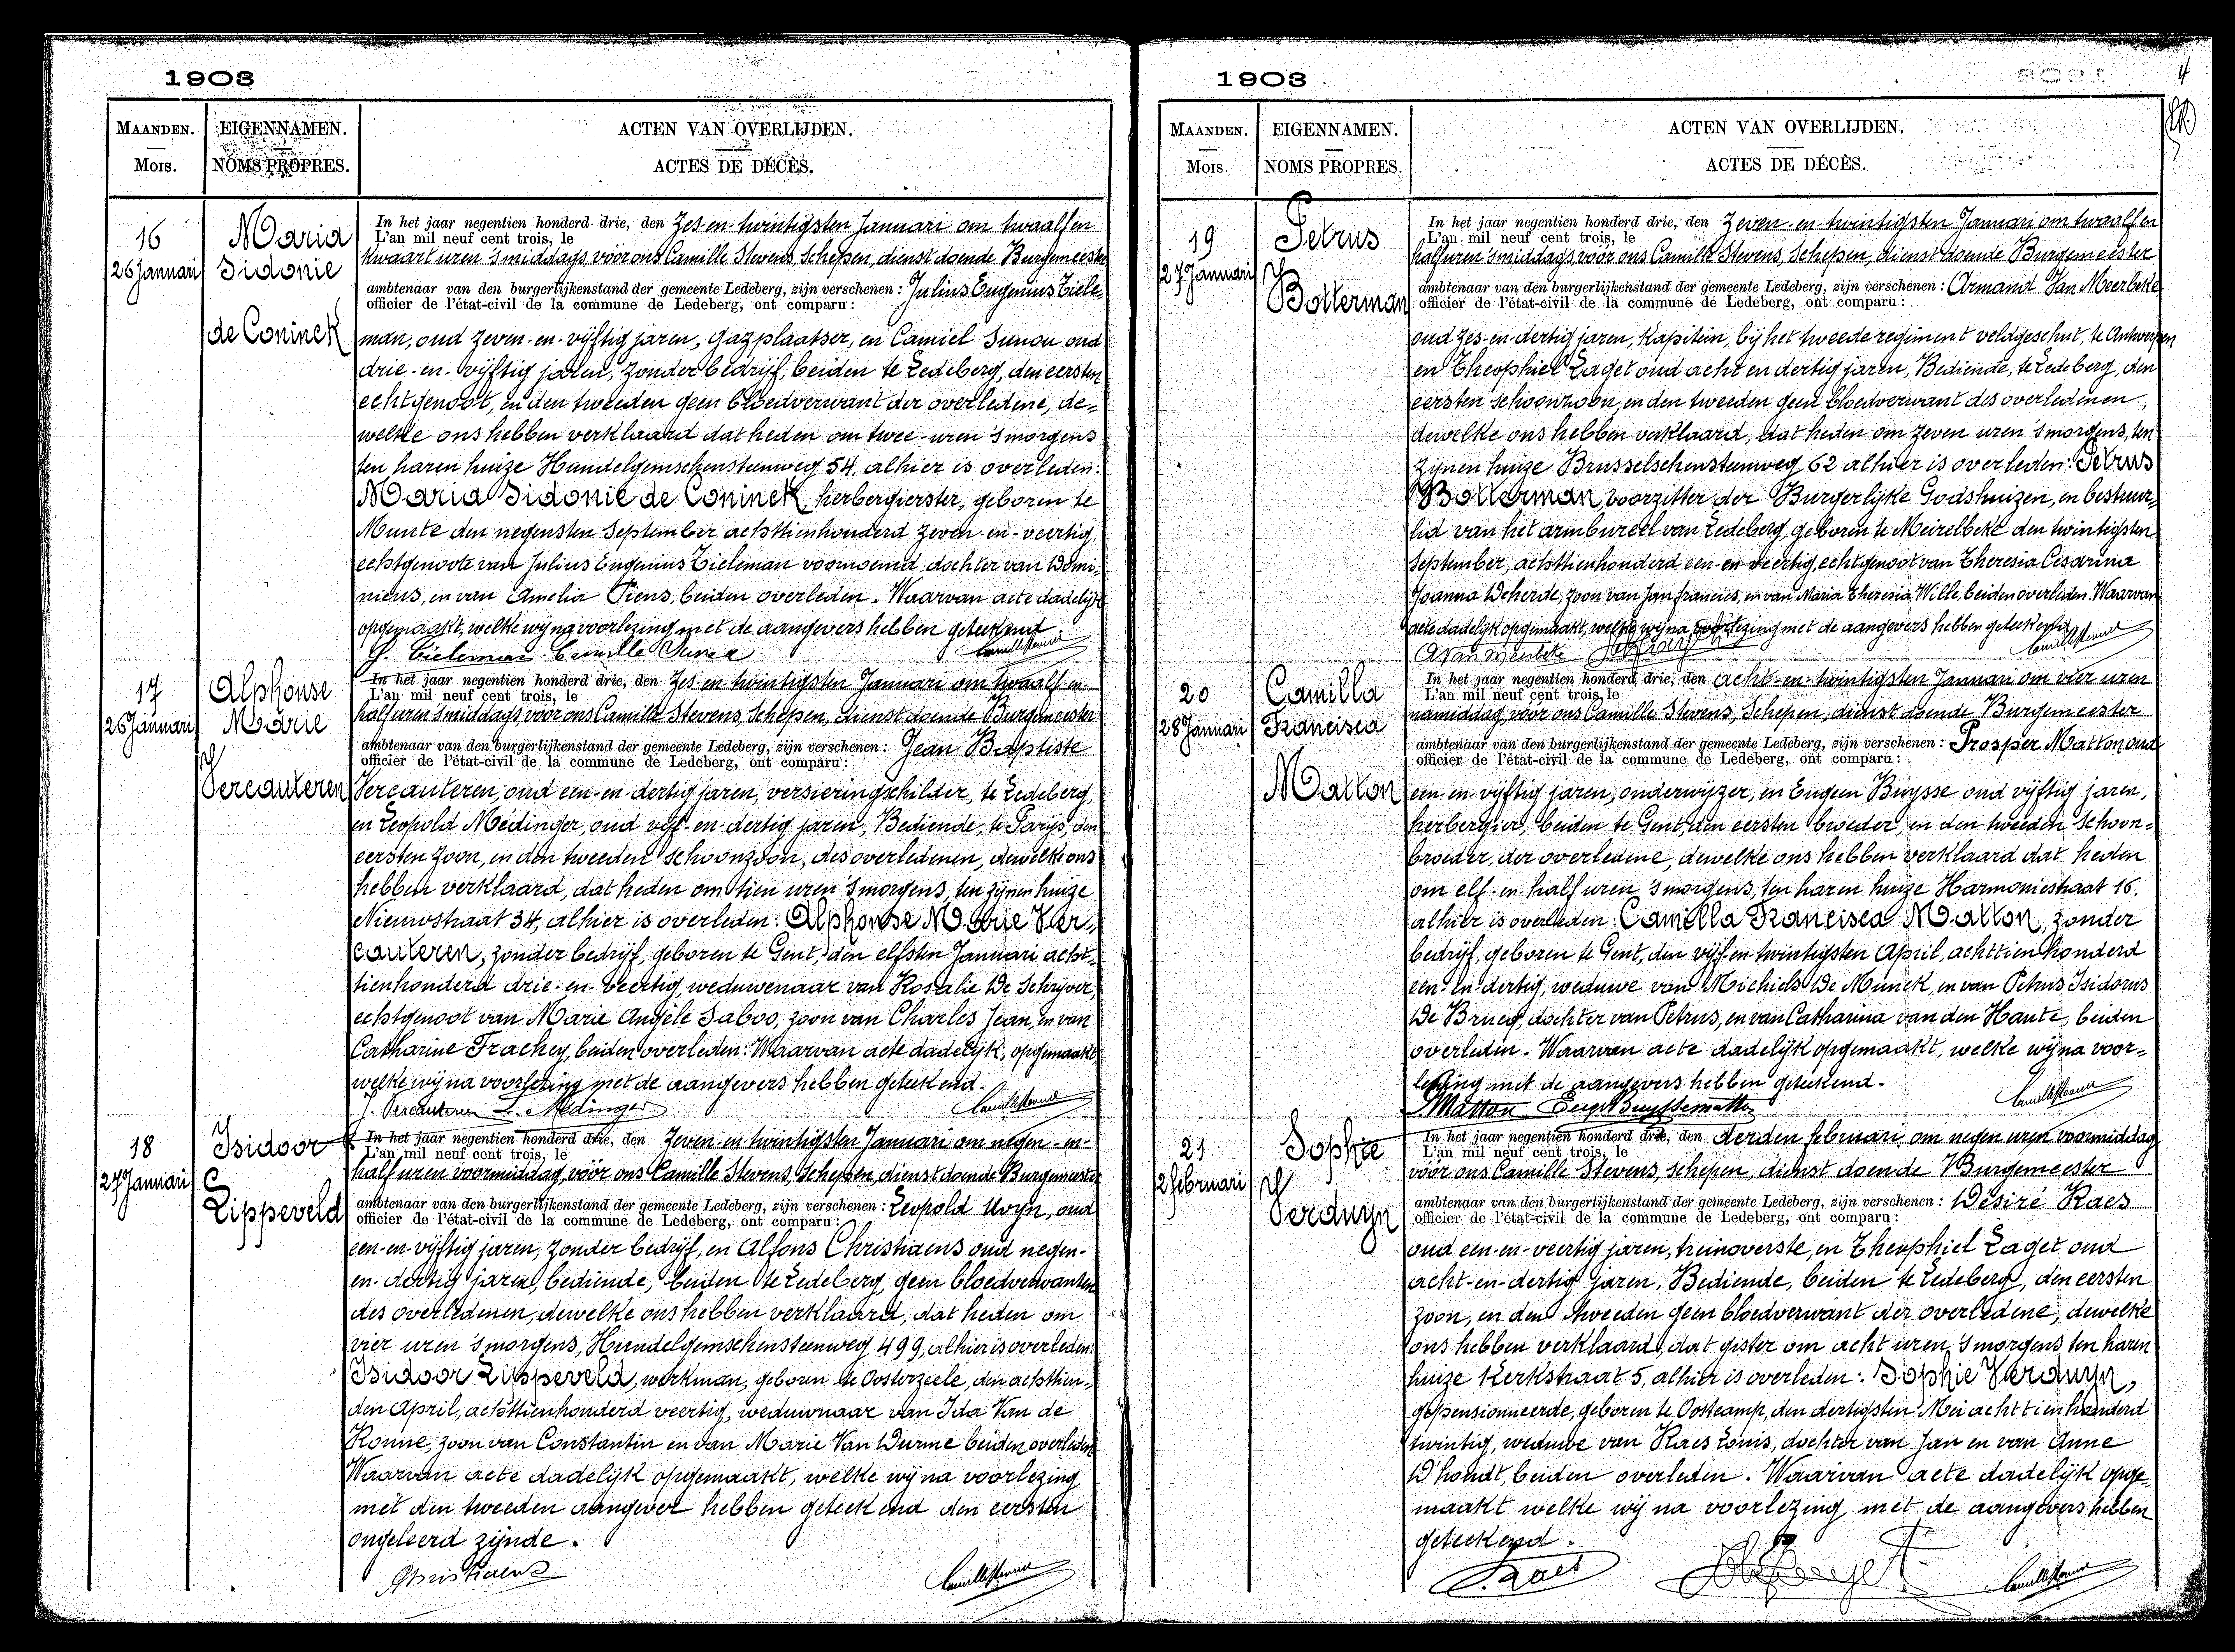 1903
MAANDEN.
MOIS.
EIGENNAMEN.
NOMS PROPRES.
ACTEN VAN OVERLIJDEN.
ACTES DE DÉCÈS.
16
26 Januari
Maria
Sidonie
de Coninck
In het jaar negentien honderd drie, den Zes-en-twintigsten Januari om twaalf en
L'an mil neuf cent trois, le
kwaart uren 's middags, vóór ons Camille Stevens, Schepen, dienst doende Burgemeester
ambtenaar van den burgerlijkenstand der gemeente Ledeberg, zijn verschenen: Julius Eugenius Tiele=
officier de l'état-civil de la commune de Ledeberg, ont comparu:
man, oud zeven-en-vijftig jaren, gazplaatser, en Camiel Sunou oud
drie-en-vijftig jaren, zonder bedrijf, beiden te Ledeberg, den eersten
echtgenoot, en den tweeden geen bloedverwant der overledene, de=
welke ons hebben verklaard dat heden om twee uren 's morgens
ten haren huize Hundelgemschensteenweg 54, alhier is overleden:
Maria Sidonie de Coninck, herbergierster, geboren te
Munte den negensten September achttienhonderd zeven-en-veertig,
echtgenoote van Julius Eugenius Tieleman voornoemd, dochter van Domi=
nicus, en van Amelia Piens, beiden overleden. Waarvan acte dadelijk
opgemaakt, welke wij na voorlezing met de aangevers hebben geteekend
J. Tieleman Camille Camille Stevens
17
26 Januari
Alphonse
Marie
Vercauteren
In het jaar negentien honderd drie, den Zes-en-twintigsten Januari om twaalf-en-
L'an mil neuf cent trois, le
half uren 's middags, vóór ons Camille Stevens, Schepen, dienst doende Burgemeester
ambtenaar van den burgerlijkenstand der gemeente Ledeberg, zijn verschenen: Jean Baptiste
officier de l'état-civil de la commune de Ledeberg, ont comparu:
Vercauteren, oud een-en-dertig jaren, versieringschilder, te Ledeberg,
en Leopold Medinger, oud vijf-en-dertig jaren, Bediende, te Parijs, den
eersten zoon, en den tweeden schoonzoon, des overledenen, dewelke ons
hebben verklaard, dat heden om tien uren 's morgens, ten zijnen huize
Nieuwstraat 34, alhier is overleden: Alphonse Marie Ver=
cauteren, zonder bedrijf, geboren te Gent, den elfsten Januari acht=
tienhonderd drie-en-veertig, weduwenaar van Rosalie De Schrijver,
echtgenoot van Marie Angèle Saboo, zoon van Charles Jean, en van
Catharine Frachey, beiden overleden: Waarvan acte dadelijk, opgemaakt,
welke wij na voorlezing met de aangevers hebben geteekend.
J. Vercauteren L. Medinger Camille Stevens
18
27 Januari
Isidoor
Lippeveld
In het jaar negentien honderd drie, den Zeven-en-twintigsten Januari om negen-en-
L'an mil neuf cent trois, le
half uren voormiddag, vóór ons Camille Stevens, Schepen, dienst doende Burgemeester
ambtenaar van den burgerlijkenstand der gemeente Ledeberg, zijn verschenen: Leopold Uvyn, oud
officier de l'état-civil de la commune de Ledeberg, ont comparu:
een-en-vijftig jaren, zonder bedrijf, en Alfons Christiaens oud negen-
en-dertig jaren, bediende, beiden te Ledeberg, geen bloedverwanten
des overledenen, dewelke ons hebben verklaard, dat heden om
vier uren 's morgens, Hundelgemschensteenweg 499, alhier is overleden:
Isidoor Lippeveld, werkman, geboren te Oosterzeele, den achttien=
den April, achttienhonderd veertig, weduwnaar van Ida Van de
Konne, zoon van Constantin en van Marie Van Durme beiden overleden
Waarvan acte dadelijk opgemaakt, welke wij na voorlezing
met den tweeden aangever hebben geteekend den eersten
ongeleerd zijnde.
Christiaens Camille Stevens
1903
4
MAANDEN.
MOIS.
EIGENNAMEN.
NOMS PROPRES.
ACTEN VAN OVERLIJDEN.
ACTES DE DÉCÈS.
19
27 Januari
Petrus
Botterman
In het jaar negentien honderd drie, den Zeven-en-twintigsten Januari om twaalf en
L'an mil neuf cent trois, le
half uren 's middags, vóór ons Camille Stevens, Schepen, dienst doende Burgemeester
ambtenaar van den burgerlijkenstand der gemeente Ledeberg, zijn verschenen: Armand Van Meerbeke
officier de l'état-civil de la commune de Ledeberg, ont comparu:
oud zes-en-dertig jaren, kapitein, bij het tweede regiment veldgeschut, te Antwerpen
en Theophiel Laget oud acht en dertig jaren, Bediende, te Ledeberg, den
eersten schoonzoon, en den tweeden geen bloedverwant des overledenen,
dewelke ons hebben verklaard, dat heden om zeven uren 's morgens, ten
zijnen huize Brusselschensteenweg 62 alhier is overleden: Petrus
Botterman, voorzitter der Burgerlijke Godshuizen, en bestuur=
lid van het armbureel van Ledeberg, geboren te Meirelbeke den twintigsten
September, achttienhonderd een-en-veertig, echtgenoot van Theresia Cesarina
Joanna Deherde, zoon van Jan francies, en van Maria Theresia Wille, beiden overleden. Waarvan
acte dadelijk opgemaakt, welke wij na voorlezing met de aangevers hebben geteekend
A Van Meerbeke Camille Stevens
20
28 Januari
Camilla
Francisca
Matton
In het jaar negentien honderd drie, den acht-en-twintigsten Januari om vier uren
L'an mil neuf cent trois, le
namiddag, vóór ons Camille Stevens, Schepen, dienst doende Burgemeester
ambtenaar van den burgerlijkenstand der gemeente Ledeberg, zijn verschenen: Prosper Matton oud
officier de l'état-civil de la commune de Ledeberg, ont comparu:
een-en-vijftig jaren, onderwijzer, en Eugeen Buysse oud vijftig jaren,
herbergier, beiden te Gent, den eersten broeder, en den tweeden schoon=
broeder, der overledene, dewelke ons hebben verklaard dat heden
om elf-en-half uren 's morgens, ten haren huize Harmoniestraat 16,
alhier is overleden: Camilla Francisca Matton, zonder
bedrijf, geboren te Gent, den vijf-en-twintigsten April, achttien honderd
een-en-dertig, weduwe van Michiels De Munck, en van Petrus Isidorus
De Brucq, dochter van Petrus, en van Catharina van den Haute, beiden
overleden. Waarvan acte dadelijk opgemaakt, welke wij na voor=
lezing met de aangevers hebben geteekend.
P Matton Eug Buysse matton Camille Stevens
21
2 februari
Sophie
Verduyn
In het jaar negentien honderd drie, den derden februari om negen uren voormiddag
L'an mil neuf cent trois, le
vóór ons Camille Stevens, schepen, dienst doende Burgemeester
ambtenaar van den burgerlijkenstand der gemeente Ledeberg, zijn verschenen: Désiré Raes
officier de l'état-civil de la commune de Ledeberg, ont comparu:
oud een-en-veertig jaren, treinoverste, en Theophiel Laget oud
acht-en-dertig jaren, Bediende, beiden te Ledeberg, den eersten
zoon, en den tweeden geen bloedverwant der overledene, dewelke
ons hebben verklaard, dat gister om acht uren 's morgens ten haren
huize Kerkstraat 5, alhier is overleden: Sophie Verduyn,
gepensionneerde, geboren te Oostcamp, den dertigsten Mei achttienhonderd
twintig, weduwe van Raes Louis, dochter van Jan en van Anne
D'hondt, beiden overleden. Waarvan acte dadelijk opge=
maakt welke wij na voorlezing met de aangevers hebben
geteekend.
Raes Camille Stevens